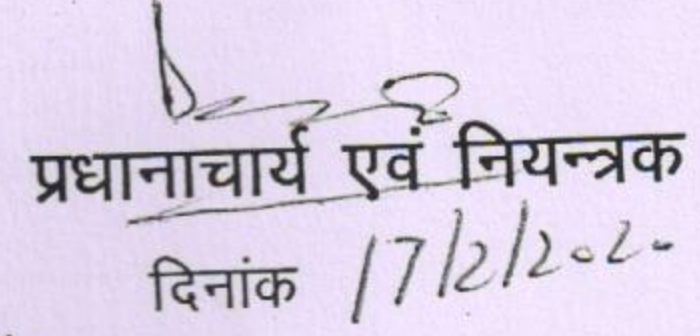 प्रधानाचार्य एवं नियन्त्रक
दिनांक 17/2/2020